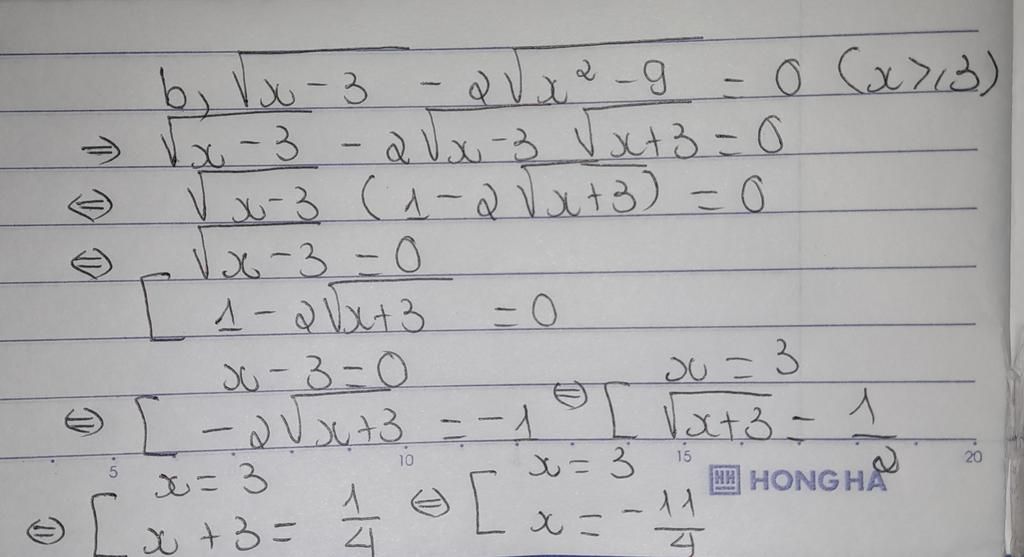 b, √(x-3) - 2√(x² - 9) = 0 (x ≥ 3)
⇒ √(x-3) - 2√(x-3) √(x+3) = 0
⇔ √(x-3) (1 - 2√(x+3)) = 0
⇔ [ √(x-3) = 0
1 - 2√(x+3) = 0
⇔ [ x - 3 = 0 ⇔ [ x = 3
-2√(x+3) = -1 √(x+3) = 1/2
5 10 15 20
HONG HA
⇔ [ x = 3 ⇔ [ x = 3
x + 3 = 1/4 x = -11/4